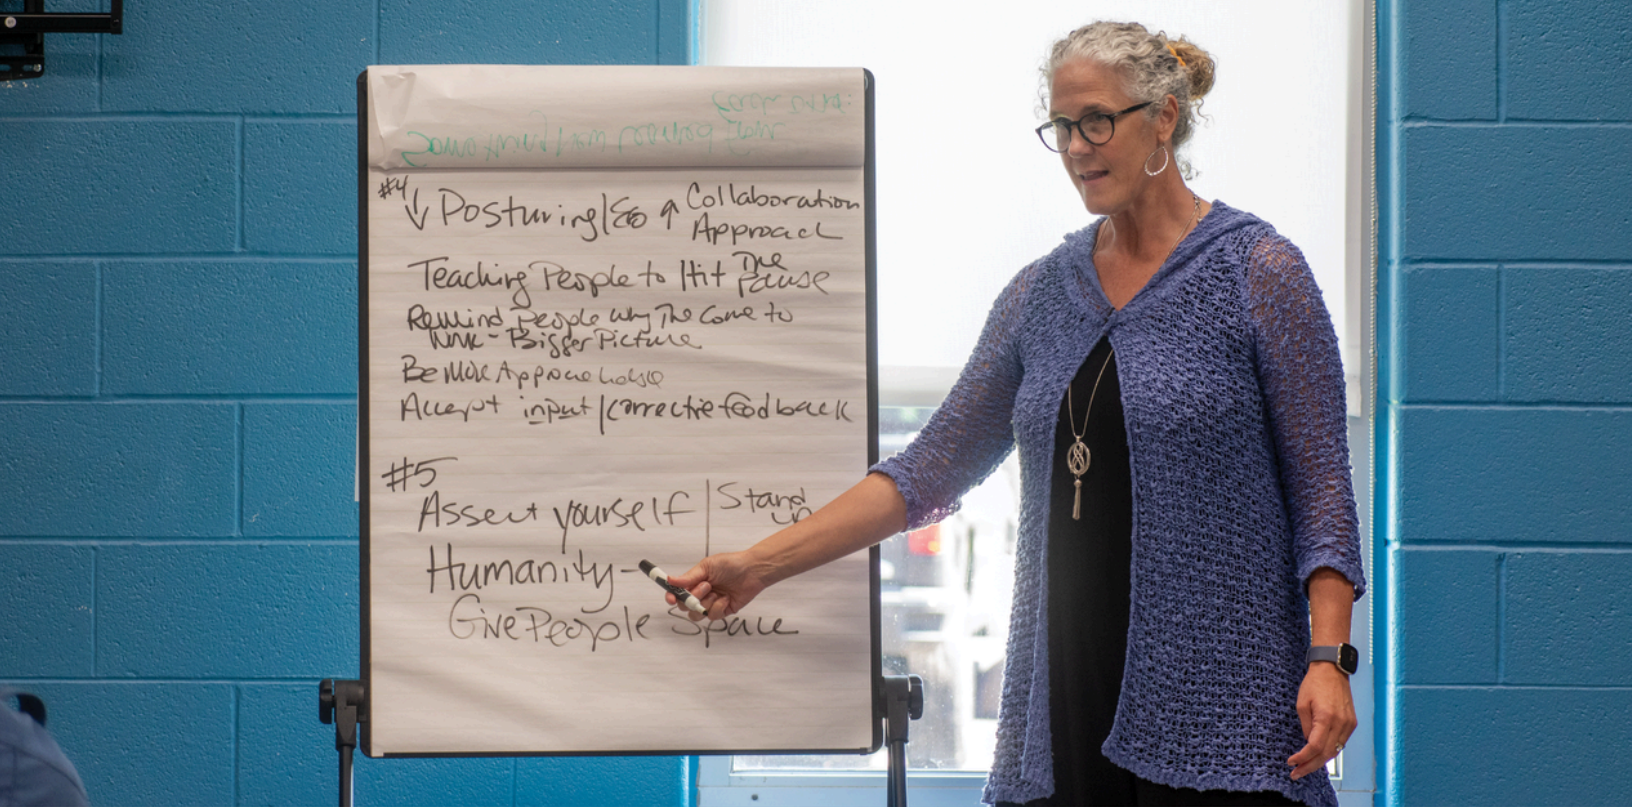 #4
↓ Posturing/Ego ↑ Collaboration
Approach
Teaching People to Hit The
Pause
Remind People why The Come to
Work - Bigger Picture
Be More Approachable
Accept input/corrective feedback
#5
Assert yourself | Stand
up
Humanity -
Give People Space